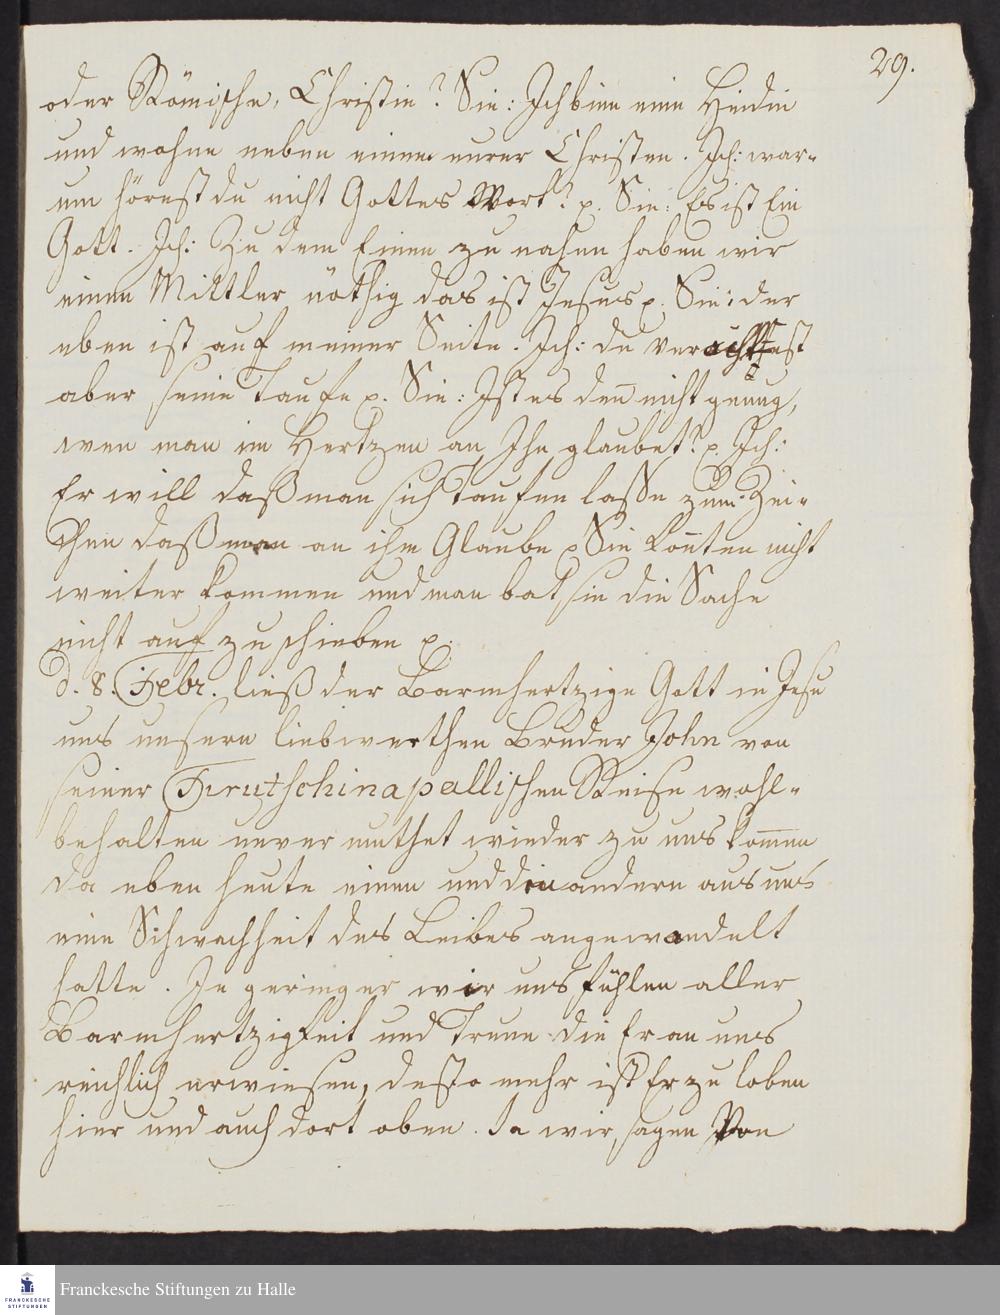 29.
oder Römische, Christin? Sie: Ich bin eine Heidin
und wohne neben einem eurer Christen. Ich: war-
um hörest du nicht Gottes Wort? p. Sie: Es ist Ein
Gott. Ich: Zu dem Einen zu nahen haben wir
einen Mittler nöthig das ist Jesus p. Sie: der
eben ist auf meiner Seite. Ich: du verachtest
aber seine Taufe p. Sie: Ist es den̅ nicht genug,
wen man im Hertzen an Ihn glaubet? p. Ich:
Er will daß man sich Taufen laße zum Zei-
chen daß man an ihn Glaube p Sie kon̅ten nicht
weiter kommen und man bat sie die Sache
nicht auf zu schieben p.
d. 8. Febr. ließ der Barmhertzige Gott in Jesu
uns unsern liebwerthen Bruder John von
seiner Tirutschinapallischen Reise wohl-
behalten unvermuthet wieder zu uns kom̅en
da eben heute einen und den andern aus uns
eine Schwachheit des Leibes angewandelt
hatte. Je geringer wir uns fühlen aller
Barmhertzigkeit und Treue die Er an uns
reichlich erwiesen, desto mehr ist Er zu loben
hier und auch dort oben. Da wir sagen Von
FRANCKESCHE
STIFTUNGEN
Franckesche Stiftungen zu Halle